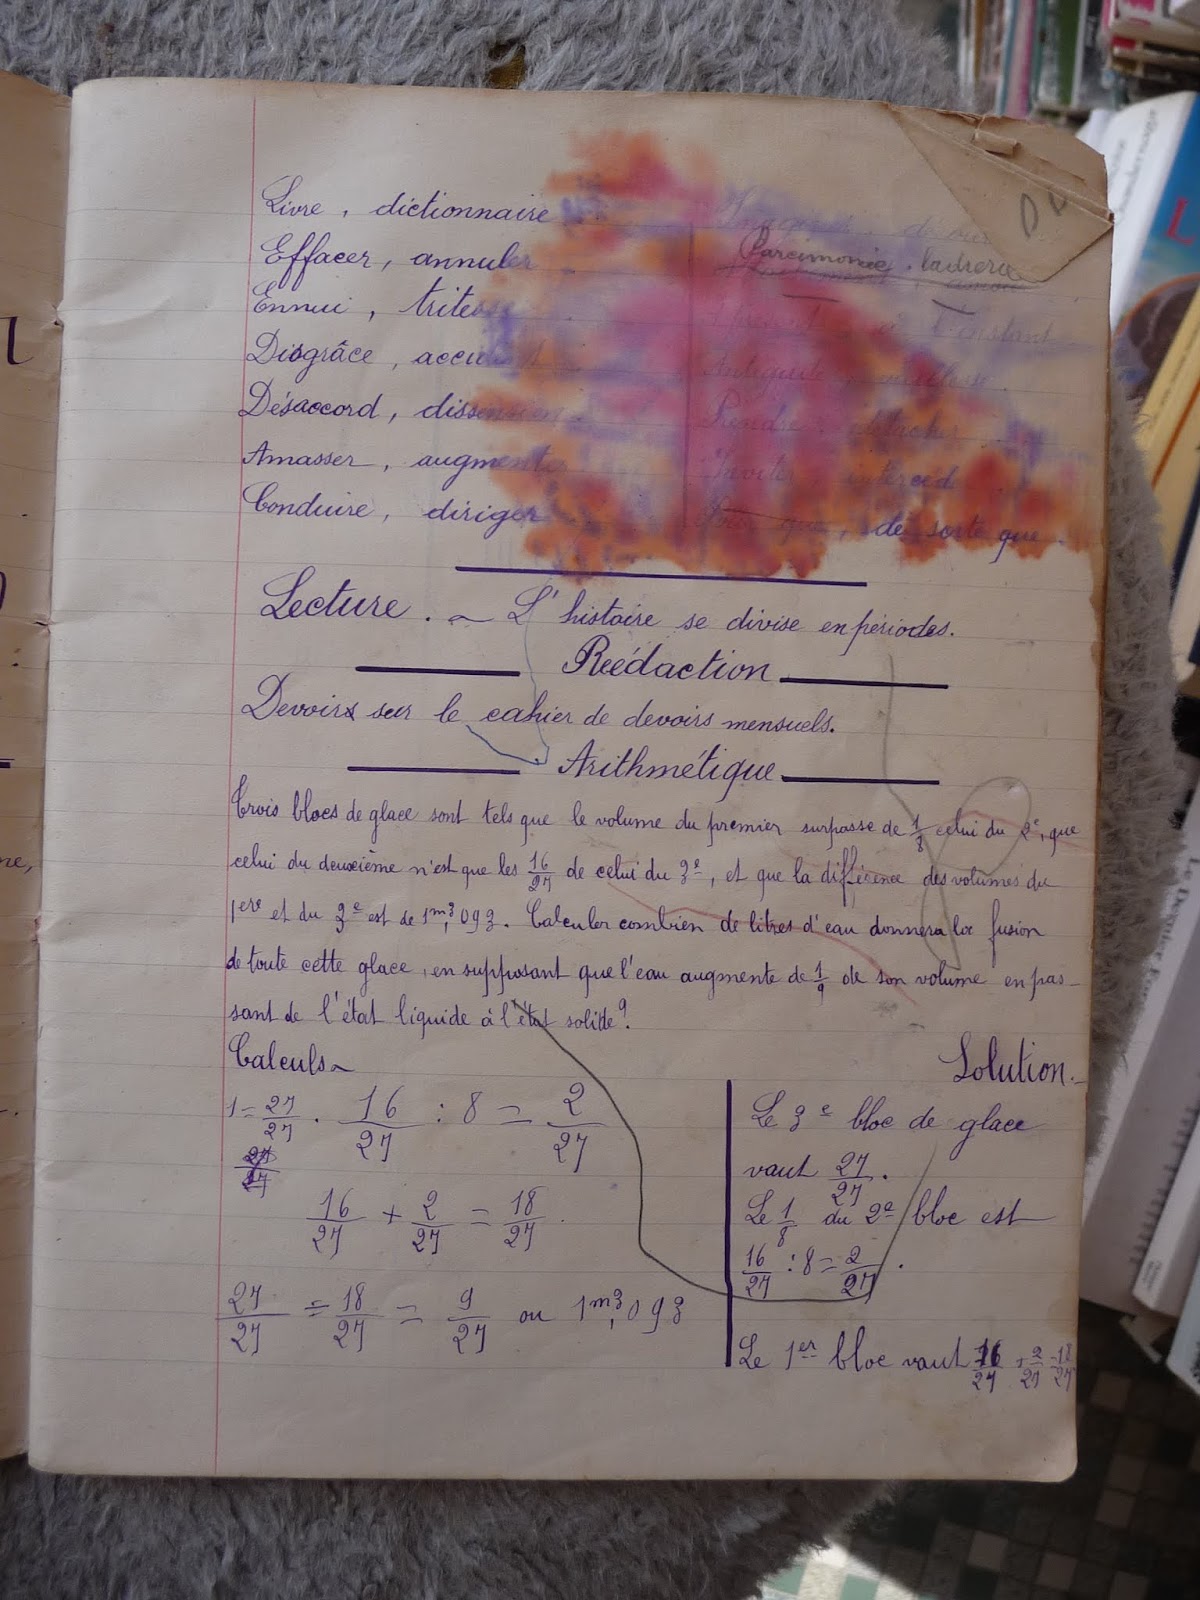 Livre, dictionnaire
Effacer, annuler
Ennui, trites
Disgrâce,
Désaccord, dissension.
Amasser, augmenter
Conduire, diriger
Parcimonie, ladrerie
à l'instant
Antiquité,
Rendre,
Inviter, intercéd
que, de sorte que
Lecture. - L'histoire se divise en périodes.
Reédaction
Devoirs sur le cahier de devoirs mensuels.
Arithmétique
Trois blocs de glace sont tels que le volume du premier surpasse de 1/8 celui du 2e, que
celui du deuxième n'est que les 16/27 de celui du 3e, et que la différence des volumes du
1ere et du 3e est de 1m3,093. Calculer combien de litres d'eau donnera la fusion
de toute cette glace, en supposant que l'eau augmente de 1/9 de son volume en pas-
sant de l'état liquide à l'état solide?
Calculs~
1 = 27/27 . 16/27 : 8 = 2/27
27/27
16/27 + 2/27 = 18/27.
27/27 = 18/27 = 9/27 ou 1m3,093
Solution.-
Le 3e bloc de glace
vaut 27/27.
Le 1/8 du 2e bloc est
16/27 : 8 = 2/27.
Le 1er bloc vaut 16/27 + 2/27 = 18/27